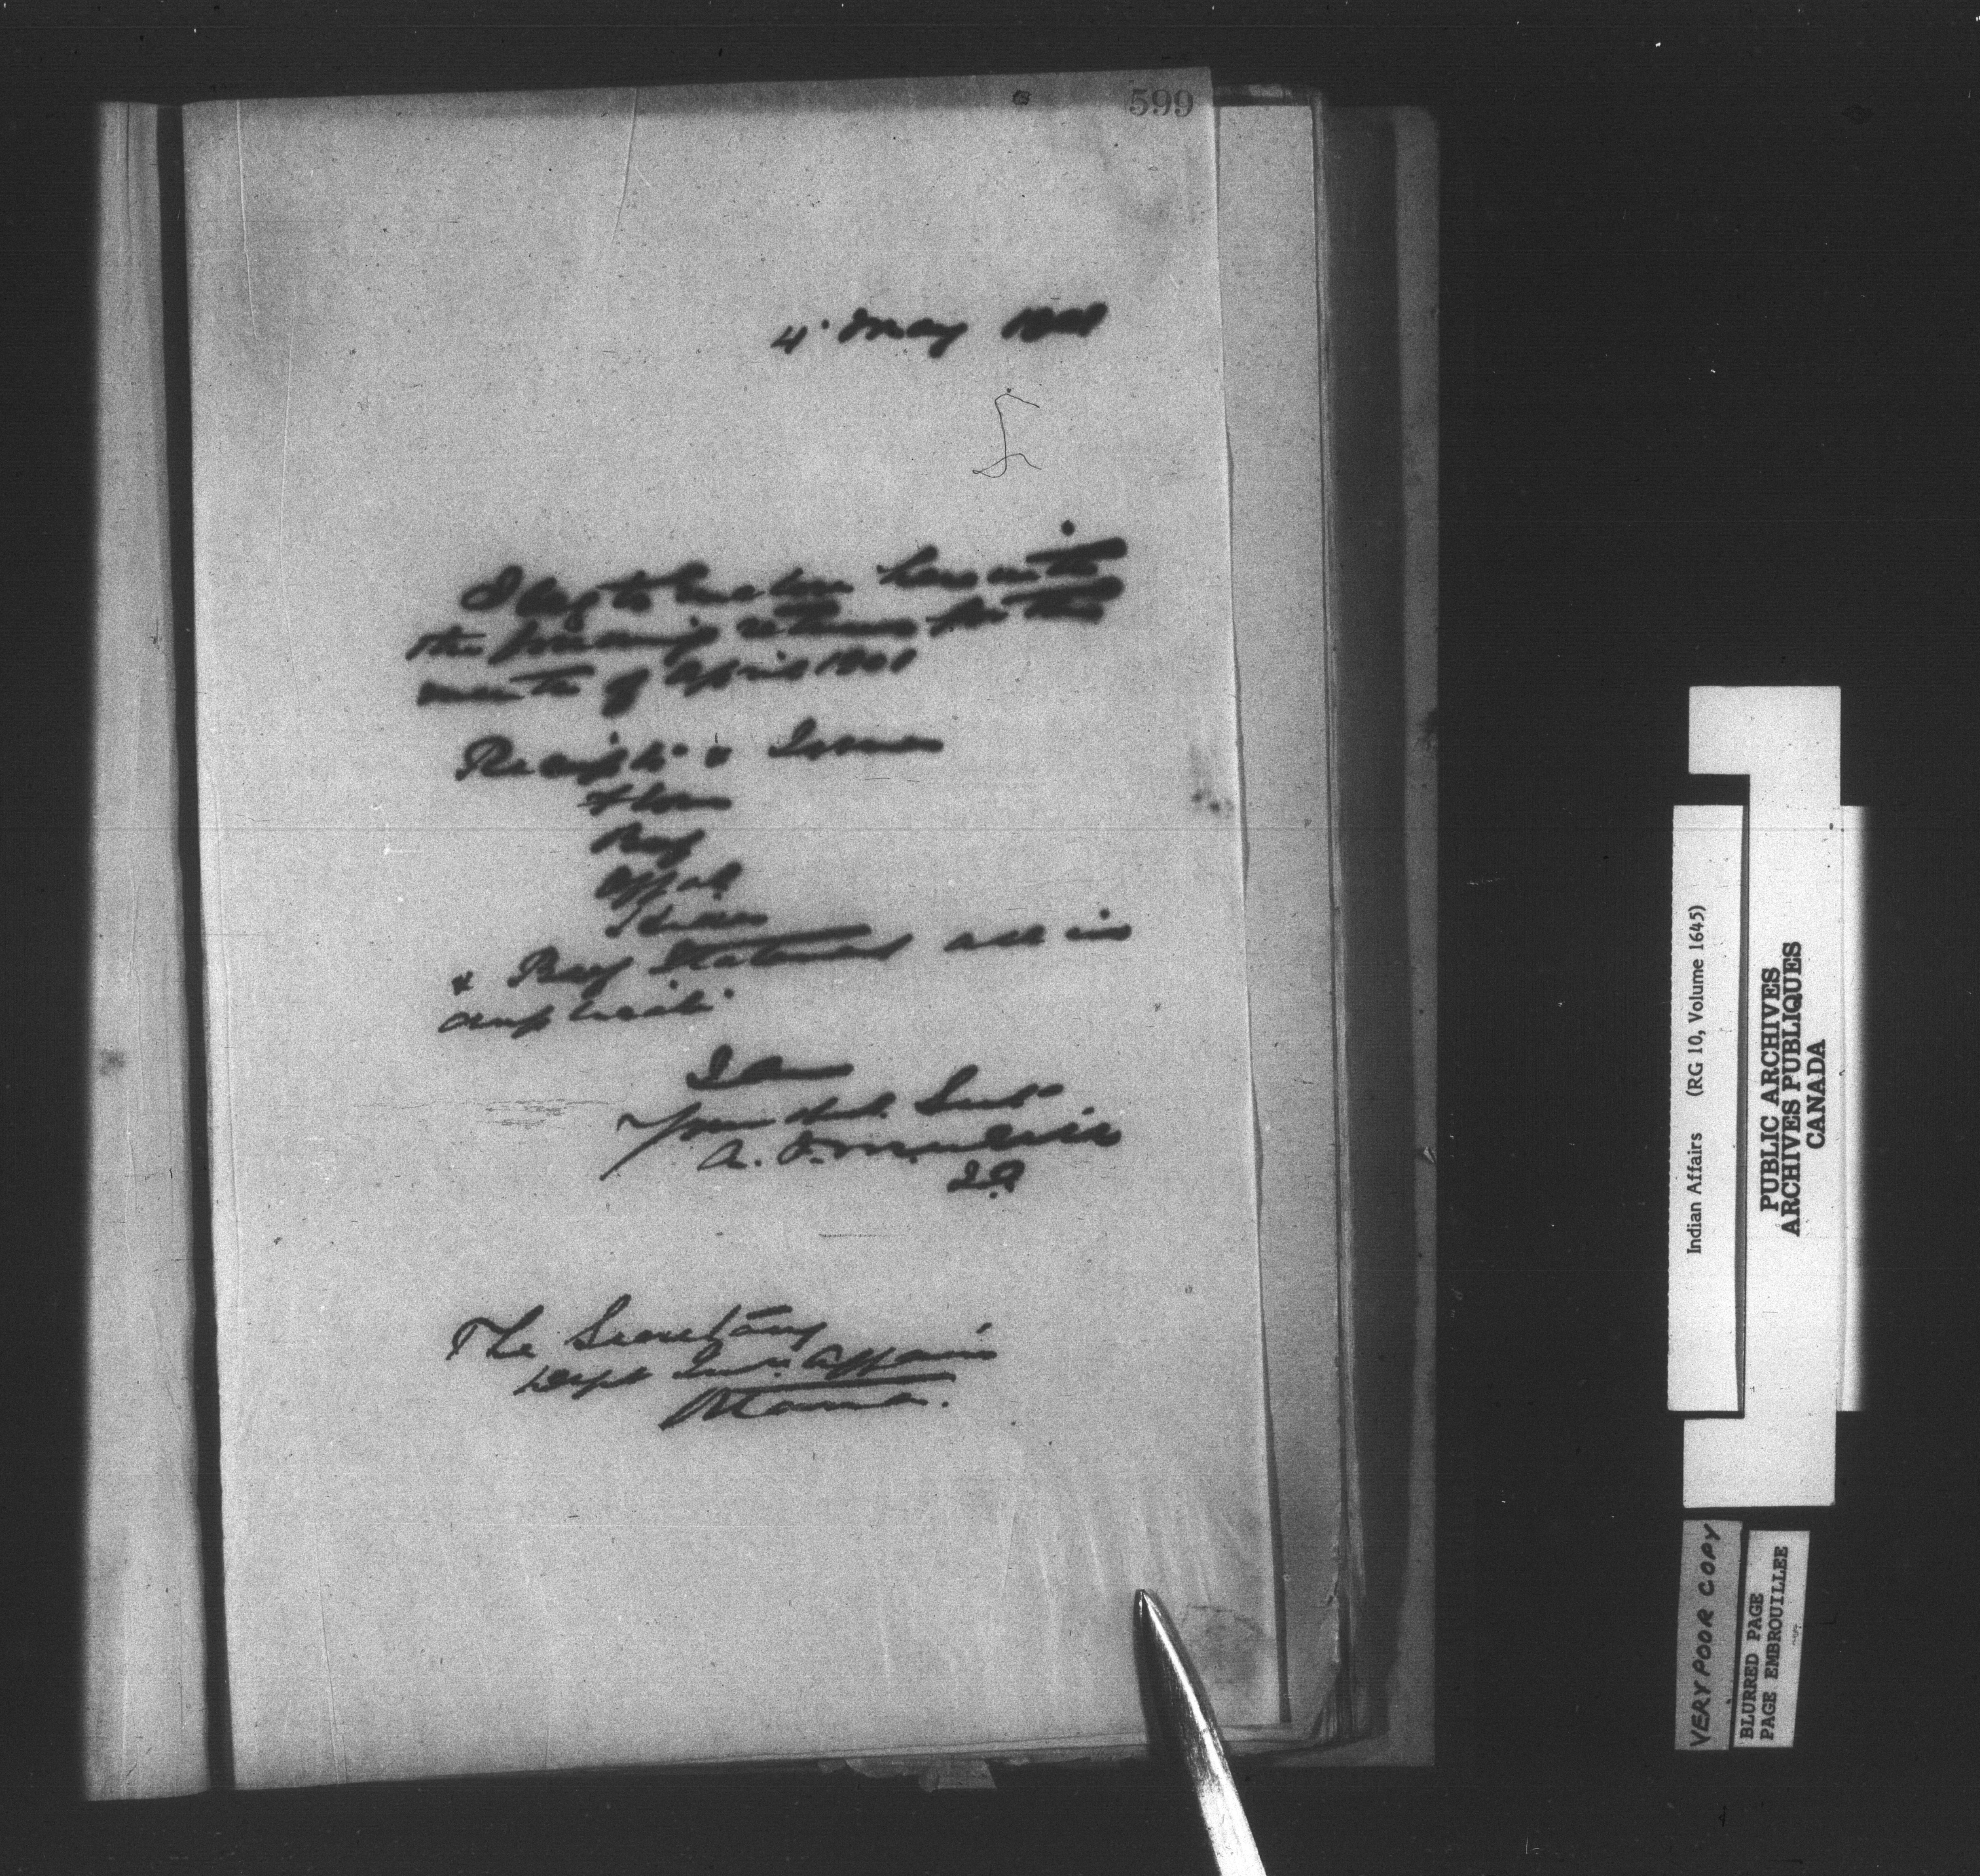 599
4 May 1901
I beg to enclose herewith
the following returns for the
month of April 1901
Receipts & Issues
Flour
Beef
Offal
Hides
& Beef Statement all in
duplicate
I am
Your obdt. Servt
A. J. McNeill
I.A.
The Secretary
Dept Ind. Affairs
Ottawa.
Indian Affairs (RG 10, Volume 1645)
PUBLIC ARCHIVES
ARCHIVES PUBLIQUES
CANADA
VERY POOR COPY
BLURRED PAGE
PAGE EMBROUILLEE